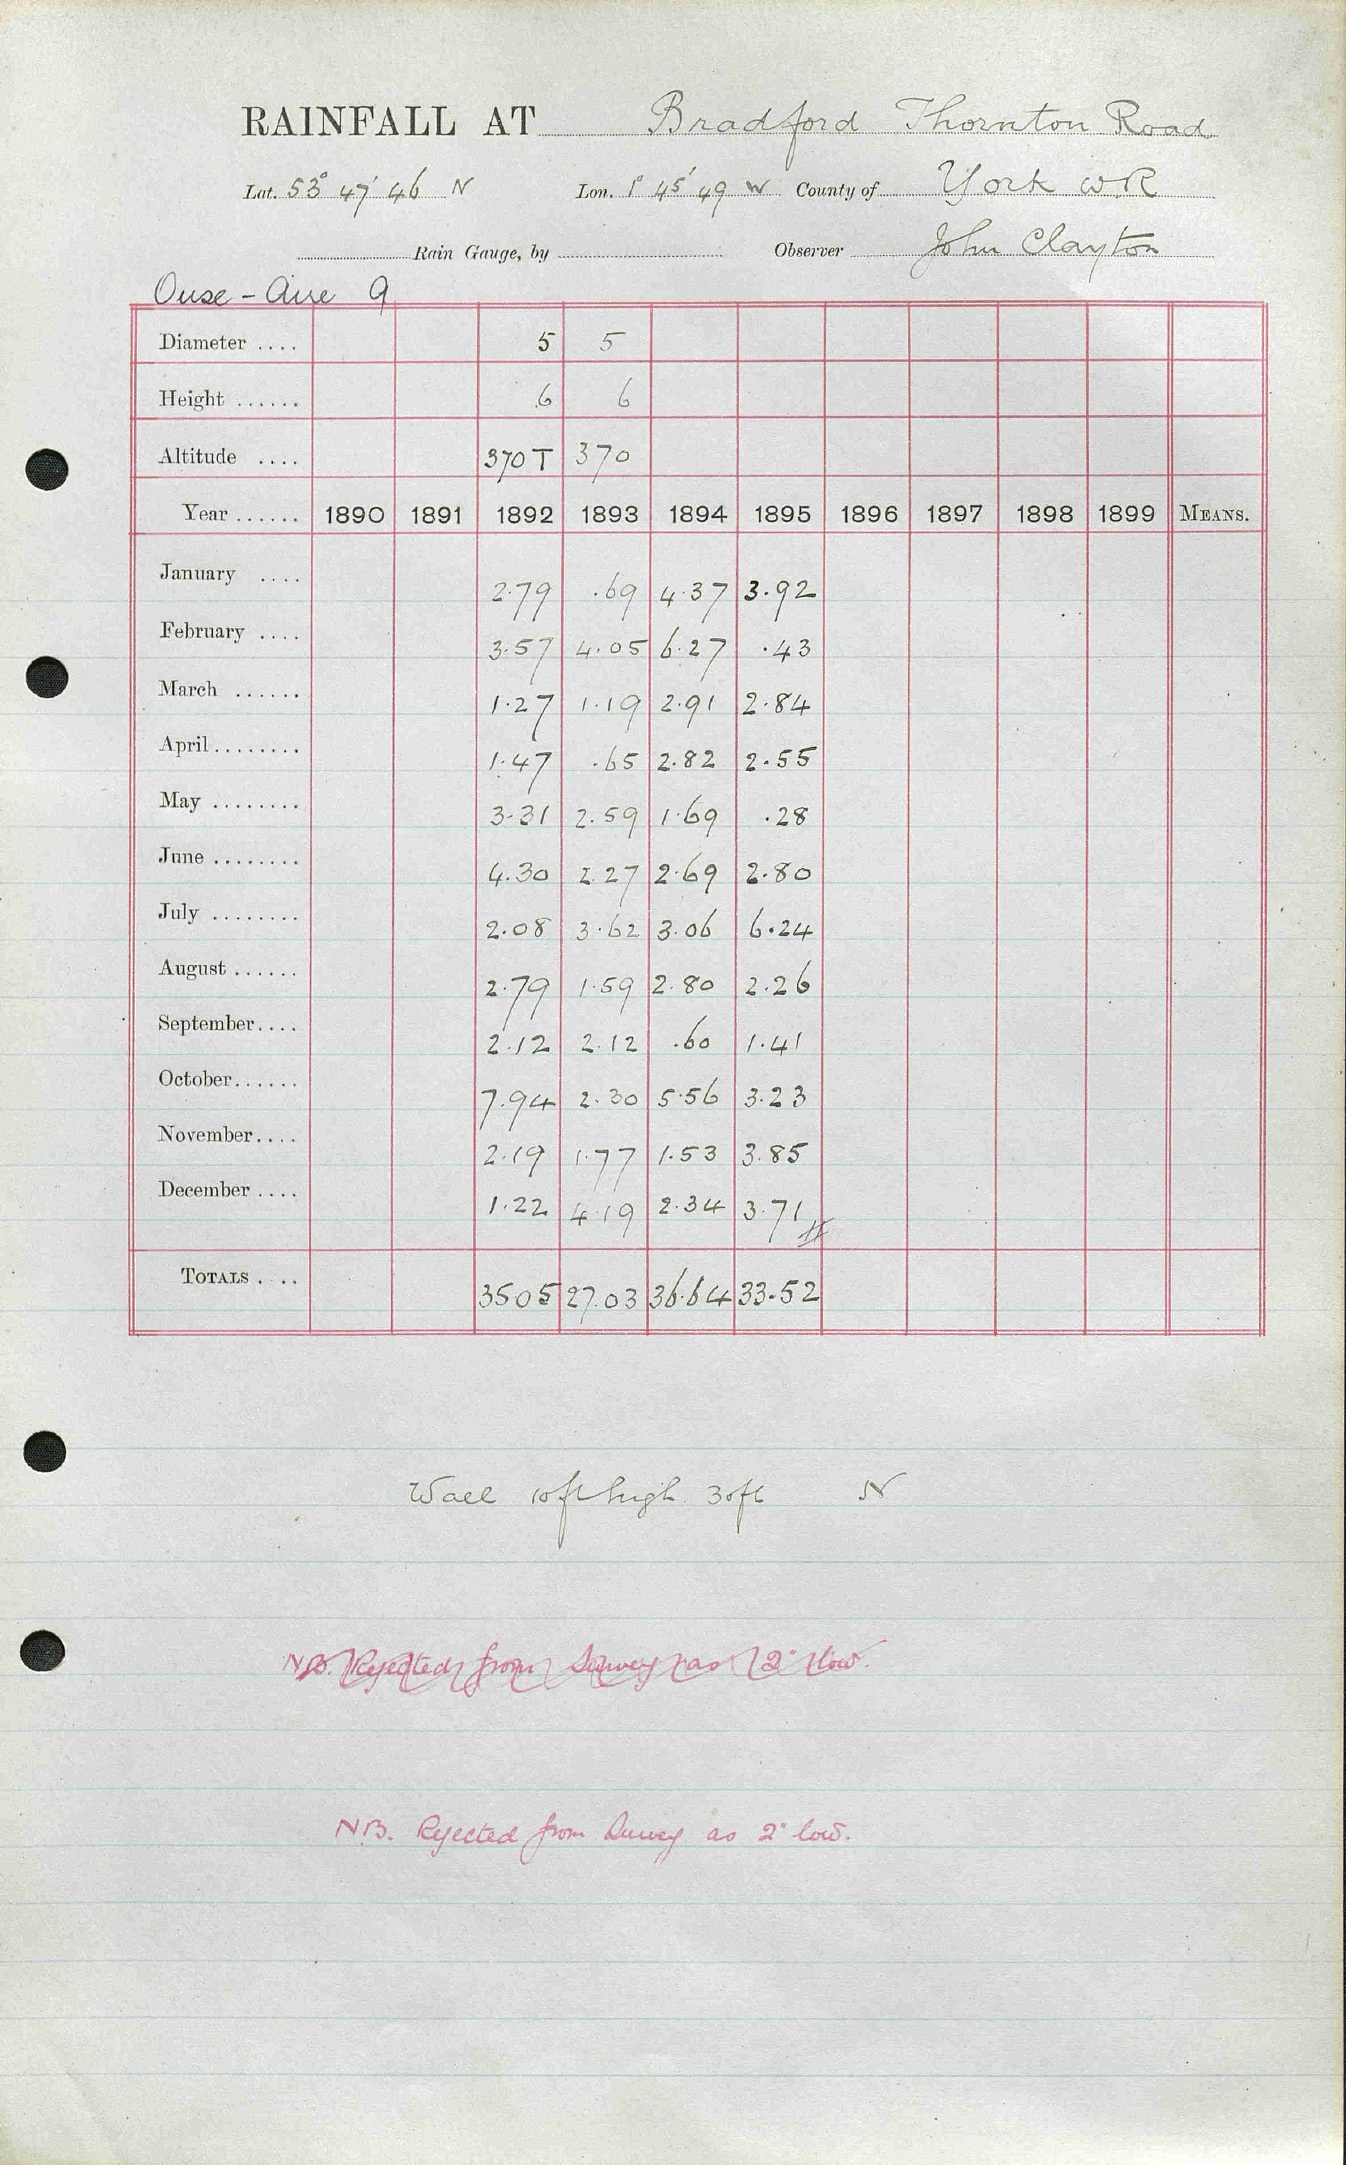 RAINFALL AT Bradford Thornton Road
Lat. 53° 47' 46 N Lon. 1° 45' 49 W County of York W.R
Rain Gauge, by Observer John Clayton
Ouse - Aire 9
Diameter .... 5 5
Height ...... 6 6
Altitude .... 370 T 370
Year ...... 1890 1891 1892 1893 1894 1895 1896 1897 1898 1899 MEANS.
January .... 2.79 .69 4.37 3.92
February .... 3.57 4.05 6.27 .43
March ...... 1.27 1.19 2.91 2.84
April ........ 1.47 .65 2.82 2.55
May ........ 3.31 2.59 1.69 .28
June ........ 4.30 2.27 2.69 2.80
July ........ 2.08 3.62 3.06 6.24
August ...... 2.79 1.59 2.80 2.26
September.... 2.12 2.12 .60 1.41
October...... 7.94 2.30 5.56 3.23
November.... 2.19 1.77 1.53 3.85
December .... 1.22 4.19 2.34 3.71
TOTALS .... 3505 27.03 36.64 33.52
Wall 10ft high 30ft N
NB. Rejected from Survey as 2" low.
NB. Rejected from Survey as 2" low.